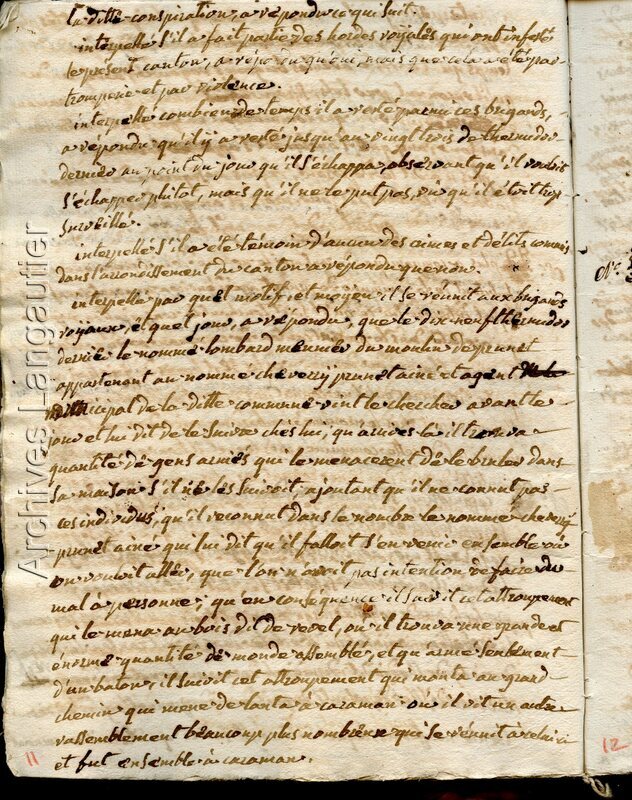 la ditte conspiration, a répondu ce qui suit.
interpellé s'il a fait partie des hordes royales qui ont infesté
le présent canton, a répondu qu'oui, mais que cela a été par
tromperie et par violence.
interpellé combien de temps il a resté parmi ces brigands,
a répondu qu'il y a resté jusqu'au vingt trois de thermidor
dernier au point du jour qu'il s'échappa, observant qu'il vouloit
s'échapper plutot, mais qu'il ne le put pas, vu qu'il étoit trop
surveillé.
interpellé s'il a été témoin d'aucun des crimes et délits commis
dans l'arrondissement du canton a répondu que non.
interpellé par quel motif, et moyen il se réunit aux brigands
royaux, et quel jour, a répondu, que le dix neuf thermidor
dernier le nommé lombard meunier du moulin de prunet
appartenant au nommé cheverry prunet ainé et agent
municipal de la ditte commune vint le chercher avant le
jour et lui dit de le suivre chés lui, qu'arrivés là il trouva
quantité de gens armés qui le menacerent de le bruler dans
sa maison s'il ne les suivoit, ajoutant qu'il ne connut pas
ces individus, qu'il reconnut dans le nombre le nommé cheverry
prunet ainé qui lui dit qu'il falloit s'en venir ensemble où
on vouloit aller, que l'on n'avoit pas intention de faire du
mal à personne; qu'en conséquence il suivit cet attroupement
qui le mena au bois dit de revel, où il trouva une grande et
énorme quantité de monde assemblé, et qu'armé seulement
d'un baton, il suivit cet attroupement qui monta au grand
chemin qui mene de lanta à caraman où il vit un autre
rassemblement beaucoup plus nombreux qui se réunit à celui ci
et fut ensemble à caraman.
11
12
Archives Langautier